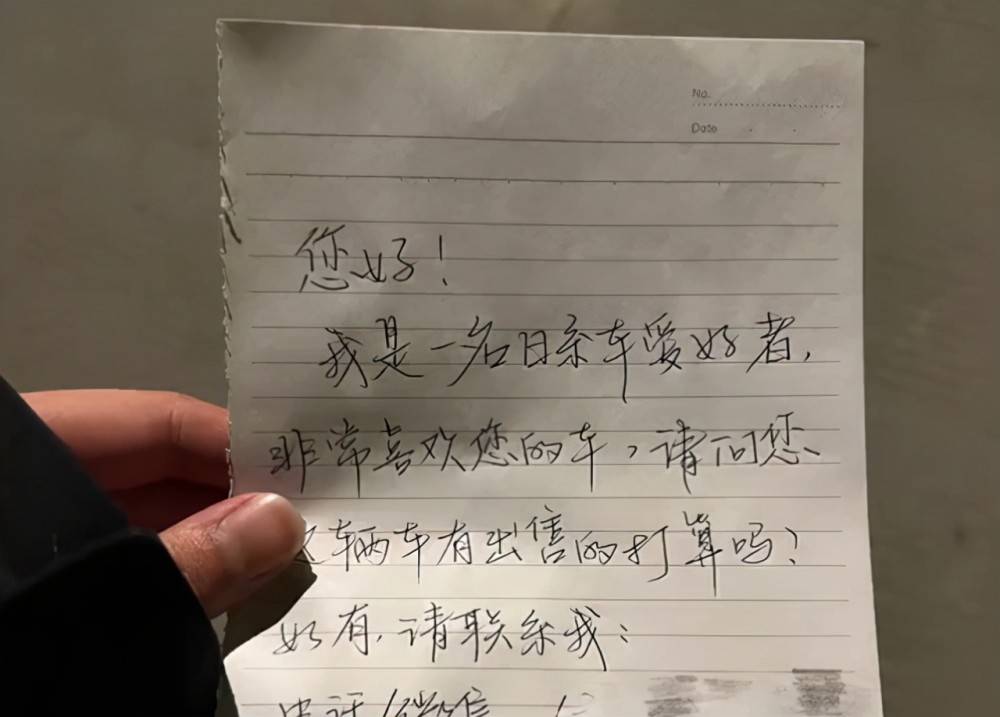 No.
Date
您好!
我是一名日系车爱好者,
非常喜欢您的车,请问您
这辆车有出售的打算吗?
如有,请联系我:
电话/微信